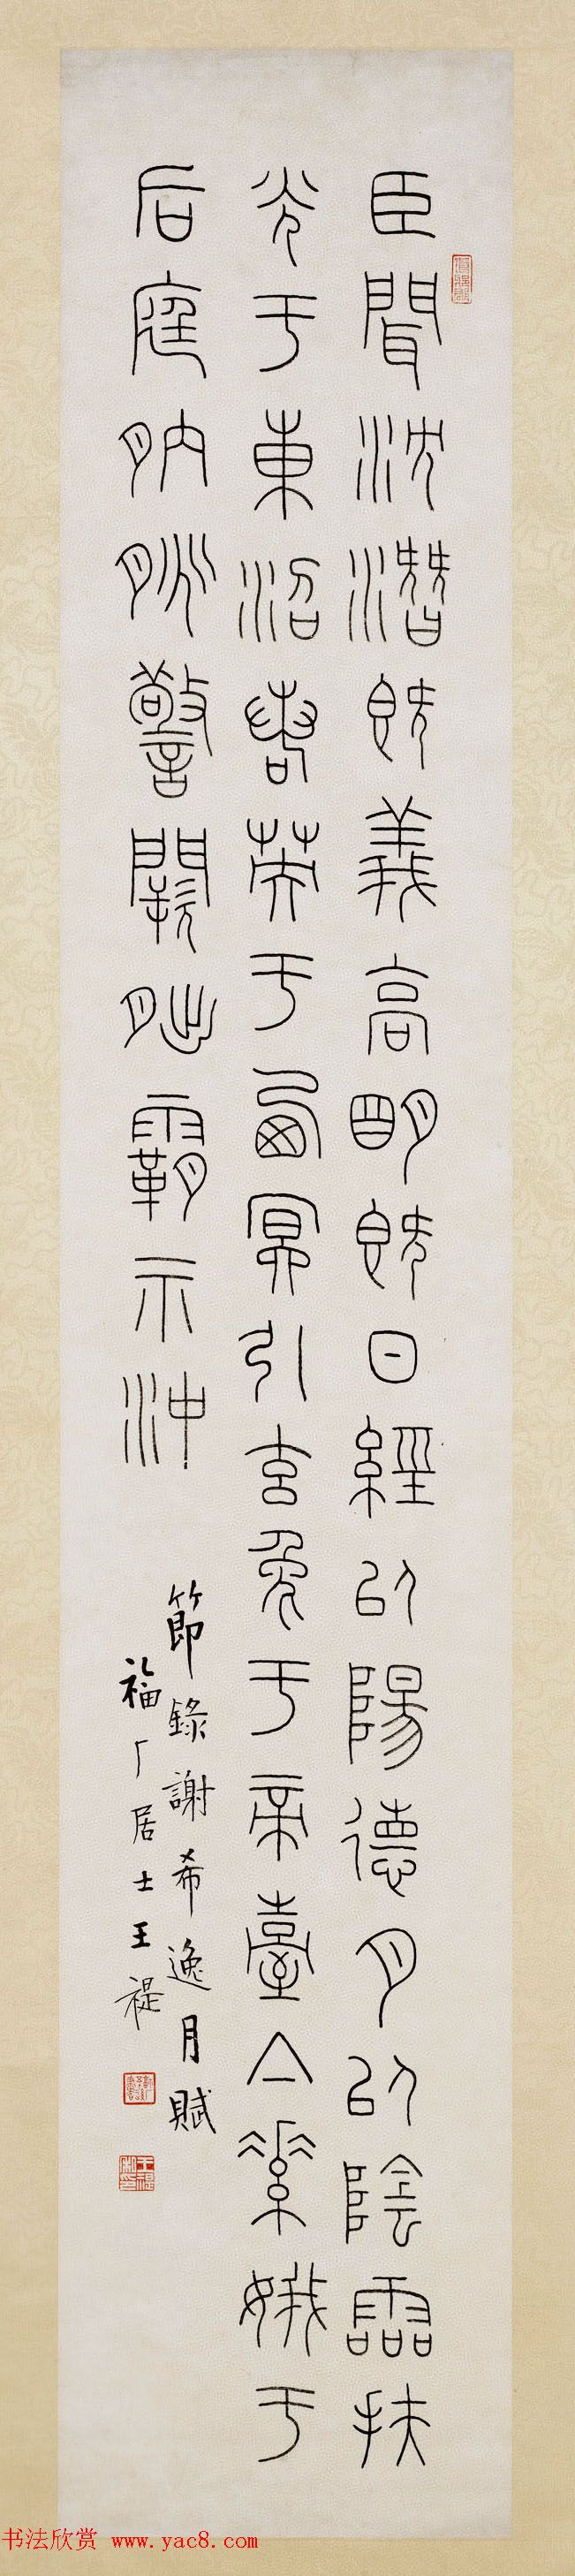 臣聞沈潛既義高明既日經以陽德月以陰靈扶
光于東沼嗇英于西冥引玄兔于帝臺亼素娥于
后庭朒朓警闕朏霸示沖
節錄謝希逸月賦
福厂居士王禔
书法欣赏 www.yac8.com